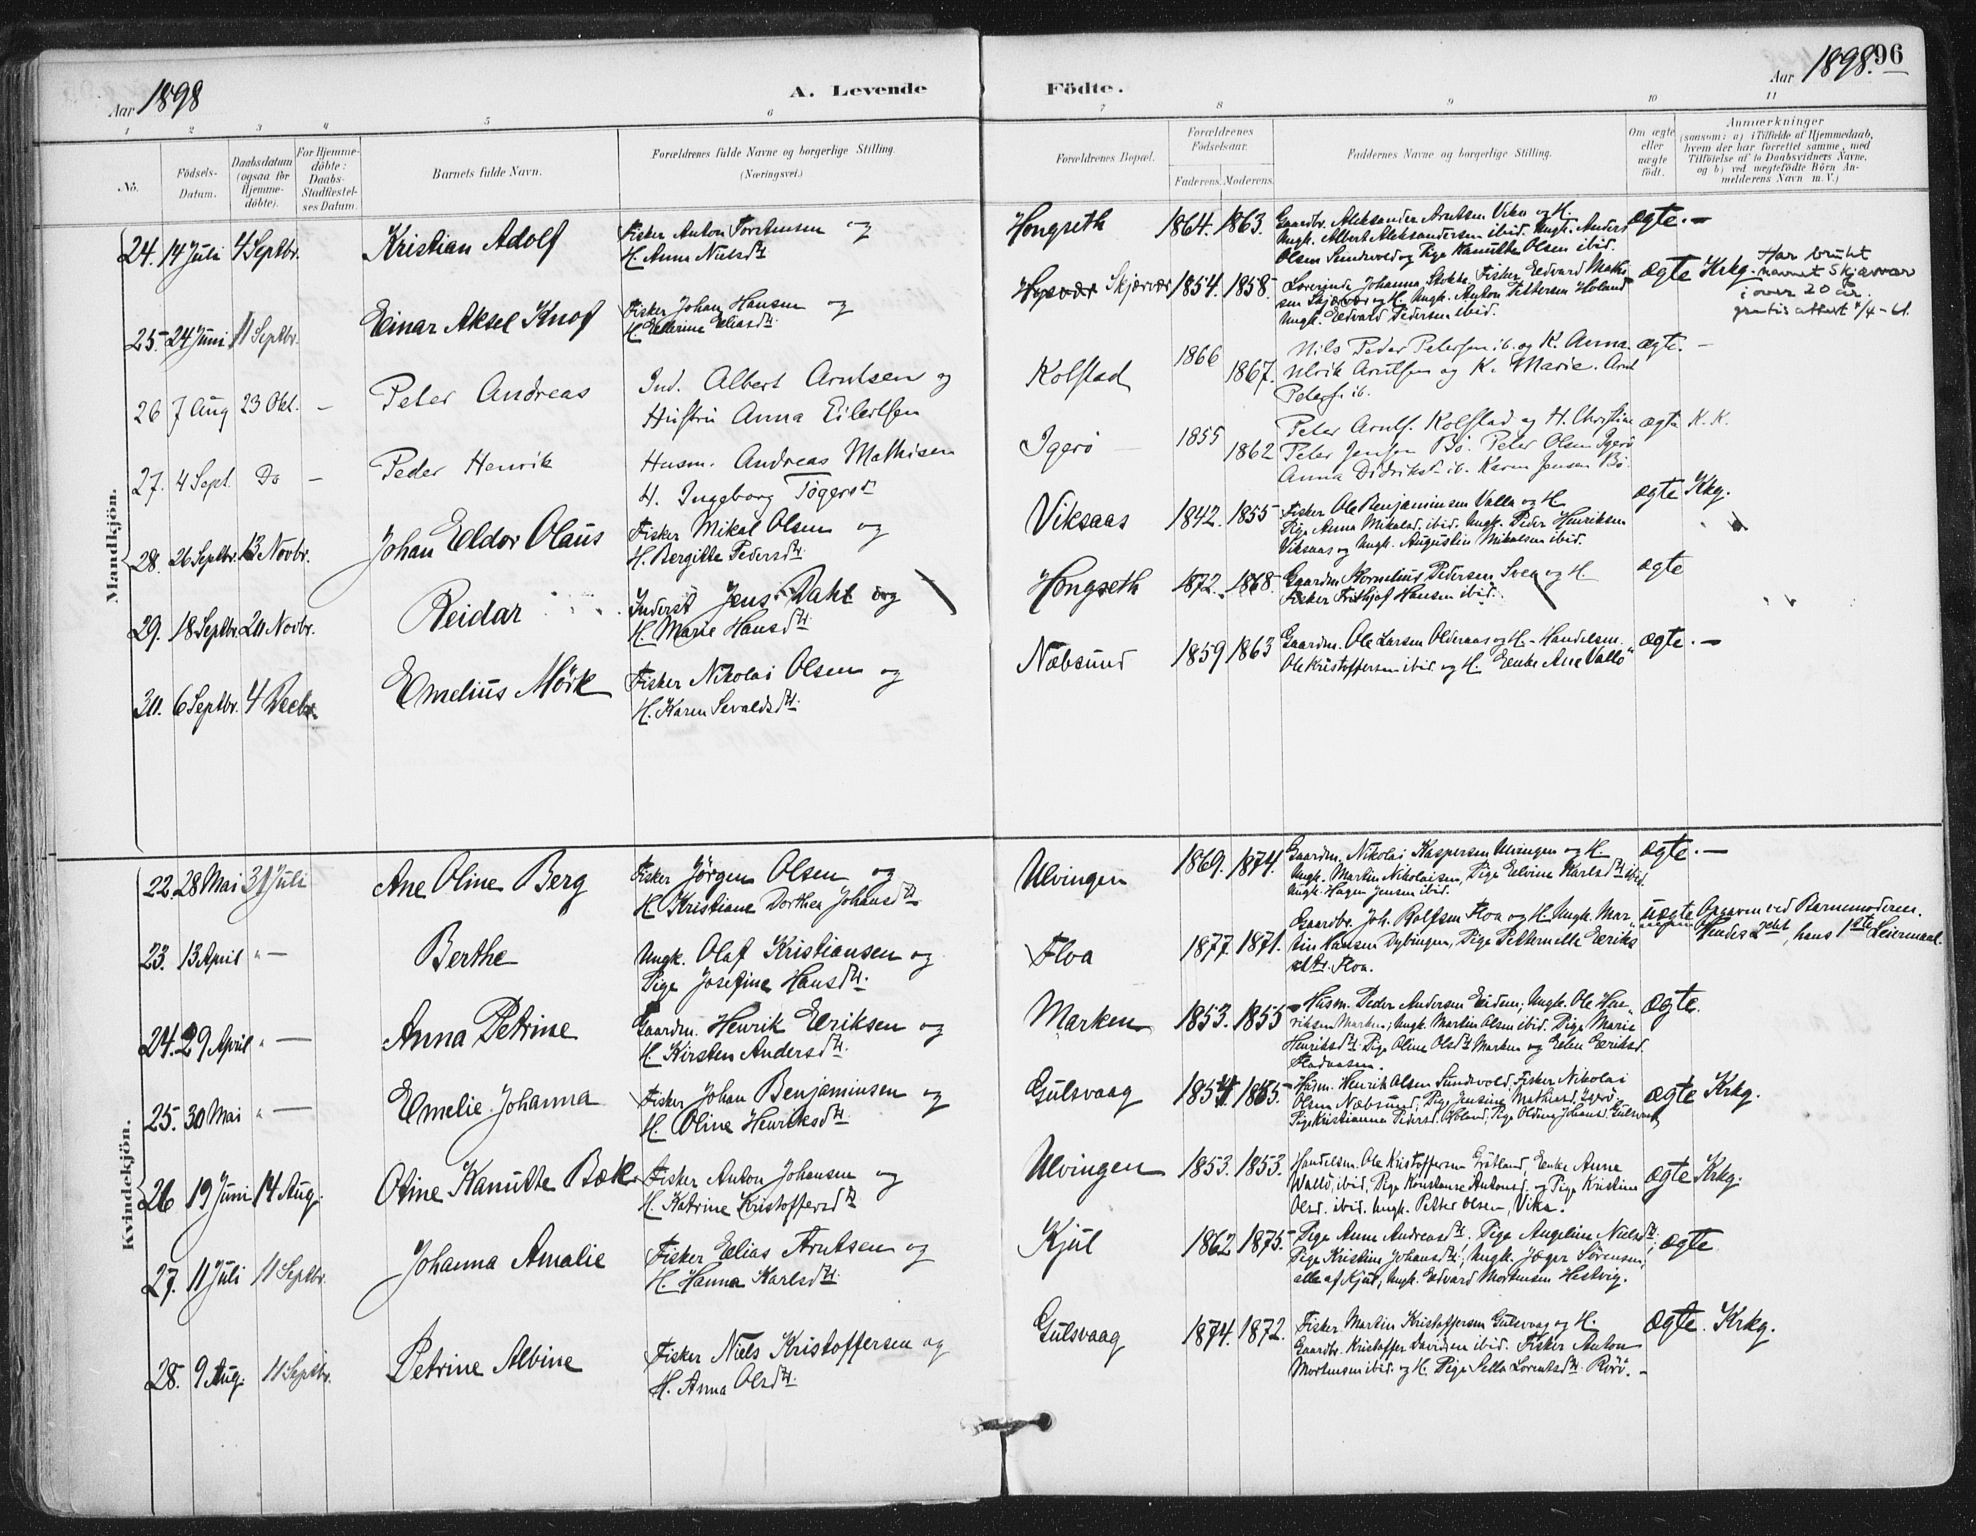 Aar 1898
A. Levende Födte.
Aar 1898. 96
1 2 3 4 5 6 7 8 9 10 11
No.
Födsels-Datum.
Daabsdatum (ogsaa for Hjemme-döbte).
For Hjemme-döbte: Daabs-Stadfæstel-ses Datum.
Barnets fulde Navn.
Forældrenes fulde Navne og borgerlige Stilling. (Næringsvei.)
Forældrenes Bopæl.
Forældrenes Födselsaar. Faderens. Moderens.
Faddernes Navne og borgerlige Stilling.
Om ægte eller uægte födt.
Anmærkninger
(saasom: a) i Tilfælde af Hjemmedaab,
hvem der har forrettet samme, med
Tilföielse af to Daabsvidners Navne,
og b) ved uægtefödte Börn An-
melderens Navn m. V.)
Mandkjön.
24. 14 Juli 4 Septbr. Kristian Adolf
Fisker Anton Torstensen og
H. Anne Nielsdtr.
Hongseth 1864. 1863.
Gaardbr. Aleksander Arntsen Vika og H.
Ungk. Albert Aleksandersen ibid. Ungk. Anders
Olsen Sundsvold og Pige Kanutte Olsen ibid.
ægte. —
25. 24 Juni 11 Septbr. Einar Aksel Knof
Fisker Johan Hansen og
H. Elldrine Eliasdtr.
Hysvær Skjærvær 1854. 1858.
Lærerinde Johanna Stokke, Fisker Edvard Mathi-
sen Skjærvær og H. Ungk. Anton Pettersen Holand
Ungk. Edvard Pedersen ibid.
ægte Krkg.
Har brukt
navnet Skjævær
i over 20 år.
gratis attest 4/4-61.
26 7 Aug 23 Okt. — Peter Andreas
Ind. Albert Arntsen og
Hustru Anna Eilertsen
Kolstad 1866 1867.
Nils Peder Petersen ib. og K. Anna
Ulrik Arntsen og K. Marie. Arnt
Peters. ib.
ægte. —
27. 4 Sept. Do — Peder Henrik
Husm. Andreas Mathisen
H. Ingeborg Tögersdtr
Igerö — 1855 1862
Peter Arnts. Kolstad og H. Christine
Peter Jensen Bö. Peter Olsen Igerö
Anna Didrikst. ib. Karen Jensen Bö.
ægte K. K.
28. 26 Septbr. 13 Novbr. Johan Eldor Olaus
Fisker Mikal Olsen og
H. Bergitte Pedersdtr.
Viksaas 1842. 1855
Fisker Ole Benjaminsen Valla og H.
Pige Anna Mikalsd. ibid. Ungk. Peder Henriksen
Viksaas og Ungk. Augustin Mikalsen ibid.
ægte Krkg.
29. 18 Septbr. 20 Novbr. Reidar
Inderst Jens Dahl og
H. Marie Hansdtr.
Hongseth 1872. 1868.
Gaardm. Kornelius Pedersen Svea og H.
Fisker Frithjof Hansen ibid.
ægte
30. 6 Septbr. 4 Decbr. Emelius Mörk
Fisker Nikolai Olsen og
H. Karen Sevaldsdtr.
Næbsund 1859 1863
Gaardm. Ole Larsen Olderaas og H. Handelsm.
Ole Kristoffersen ibid. og H. Enke Ane Vallö
ægte. —
Kvindekjön.
22. 28 Mai 31 Juli Ane Oline Berg
Fisker Jörgen Olsen og
H. Kristiane Dorthea Johansdtr
Ulvingen 1869. 1874.
Gaardm. Nikolai Kaspersen Ulvingen og H.
Ungk. Martin Nikolaisen, Pige Elvine Karlsdtr ibid.
Ungk. Hagen Jensen ibid.
ægte. —
23. 13 April " — Berthe
Ungk. Olaf Kristiansen og
Pige Josefine Hansdtr.
Floa 1877. 1871.
Gaardbr. Joh. Rolfsen Floa og H. Ungk. Mar-
tin Hansen Dybingen, Pige Petternille Eriks
dtr. Floa.
uægte Opgaven ved Barnemoderen.
Hendes 2det, hans 1ste Leiermaal.
24. 29 April " — Anna Petrine
Gaardm. Henrik Eriksen og
H. Kirsten Andersdtr.
Marken 1853. 1855
Husm. Peder Andersen Eidem; Ungk. Ole Hen-
riksen Marken; Ungk. Martin Olsen ibid. Pige Marie
Henriksdtr. Pige Oline Olsdtr Marken og Elen Eriksd.
ægte.
25. 30 Mai " — Emelie Johanna
Fisker Johan Benjaminsen og
H. Oline Henriksdtr.
Gulsvaag 1854 1855.
Husm. Henrik Olsen Sundsvold, Fisker Nikolai
Olsen Næbsund; Pige Jensine Mathiasd. Igerö,
Pige Kristianna Pedersd. Holand, Pige Oldine Johansd. Gulsvaag
ægte Krkg.
26 19 Juni 14 Aug. Otine Kanutte Bæk.
Fisker Anton Johansen og
H. Katrine Kristoffersdtr
Ulvingen 1853. 1853.
Handelsm. Ole Kristoffersen Grötland, Enke Anne
Vallö, ibid, Pige Konstanse Antonsd. og Pige Kristine
Olsd. ibid. Ungk. Petter Olsen, Vika.
ægte Krkg.
27. 11 Juli 11 Septbr. Johanna Amalie
Fisker Elias Arntsen og
H. Hanna Karlsdtr.
Kjul 1862 1875.
Pige Anne Andreasdtr, Pige Angeline Nielsdtr.
Pige Kristine Johansdtr; Ungk. Jæger Sörensen,
alle af Kjul; Ungk. Edvard Mortensen Hestvig.
ægte
28. 9 Aug. 11 Septbr. Petrine Albine
Fisker Niels Kristoffersen og
H. Anna Olsdtr.
Gulsvaag 1874. 1872.
Fisker Martin Kristoffersen Gulsvaag og H.
Gaardbr. Kristoffer Davidsen ibid. Fisker Anton
Mortensen ibid. og H. Pige Sella Lorentsdtr. Rörö. —
ægte. Krkg.